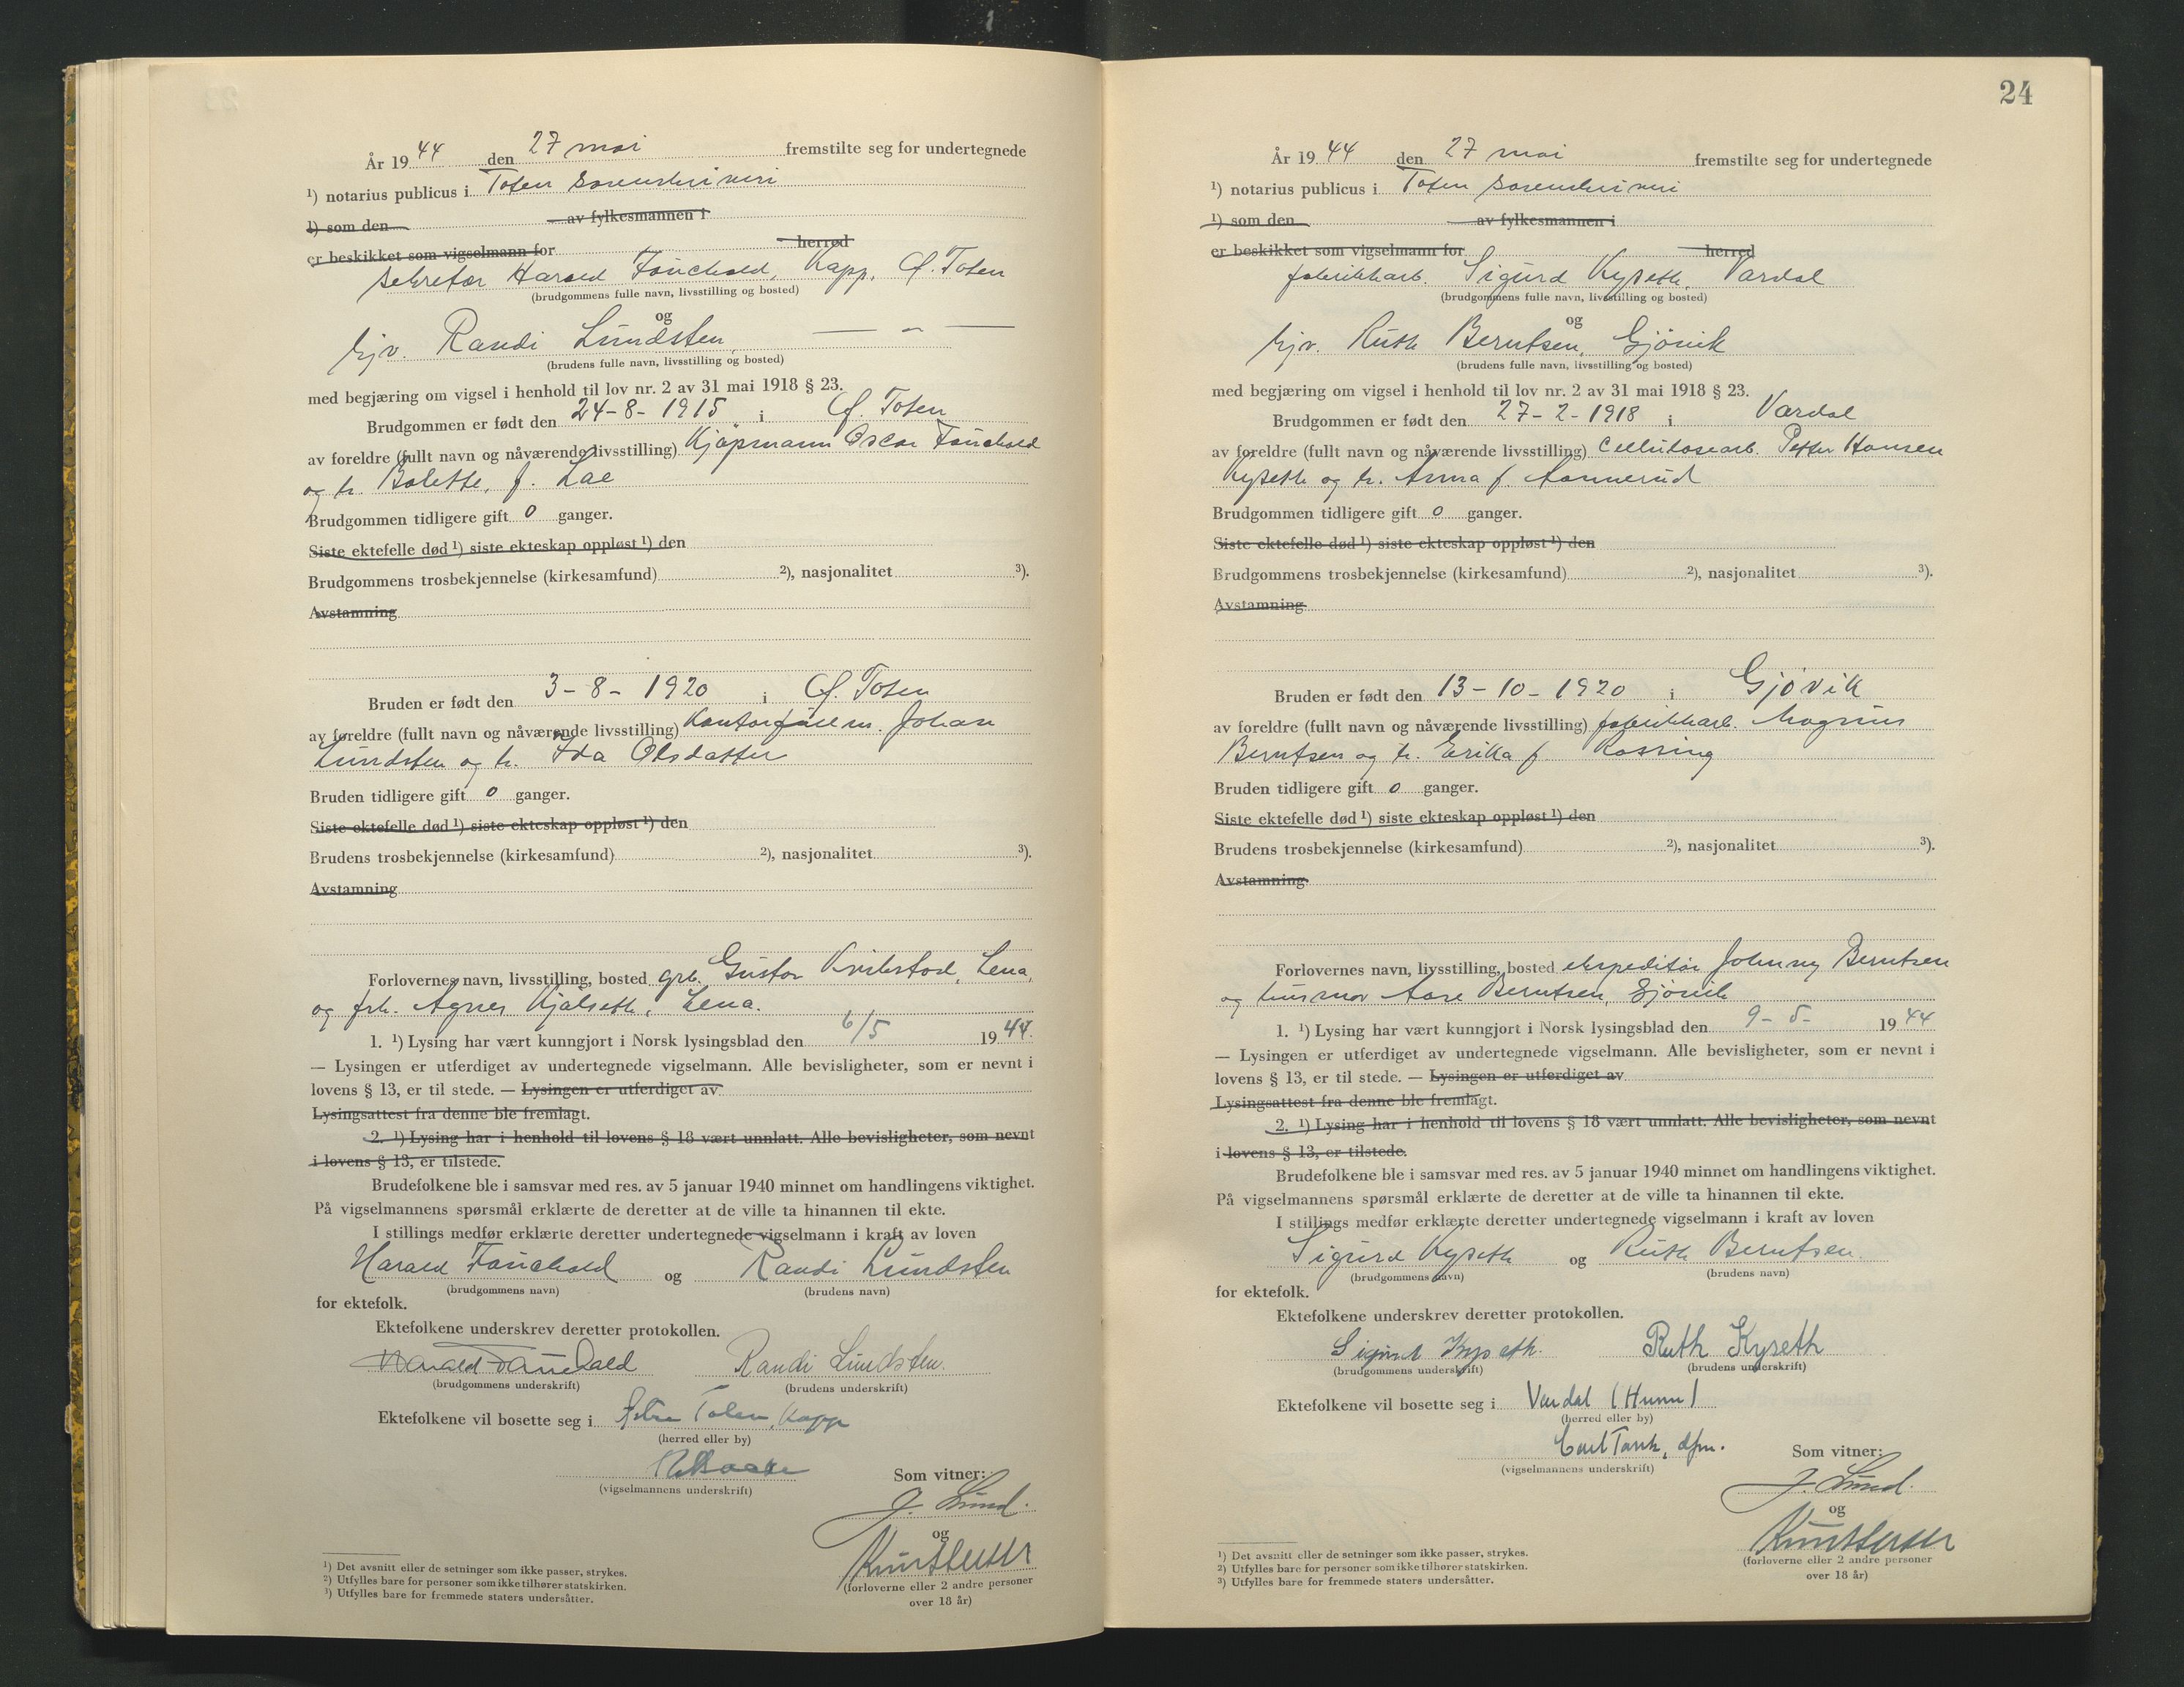 År 1944 den 27 mai fremstilte seg for undertegnede
¹) notarius publicus i Toten sorenskriveri
¹) som den av fylkesmannen i
er beskikket som vigselmann for herred
sekretær Harald Fauchald, Kapp, Ø. Toten
(brudgommens fulle navn, livsstilling og bosted)
og
hjv. Randi Lundsten, — " —
(brudens fulle navn, livsstilling og bosted)
med begjæring om vigsel i henhold til lov nr. 2 av 31 mai 1918 § 23.
Brudgommen er født den 24-8-1915 i Ø. Toten
av foreldre (fullt navn og nåværende livsstilling) Kjøpmann Oscar Fauchald
og h. Bolette, f. Lae
Brudgommen tidligere gift 0 ganger.
Siste ektefelle død ¹) siste ekteskap oppløst ¹) den
Brudgommens trosbekjennelse (kirkesamfund) ²), nasjonalitet ³).
Avstamning
Bruden er født den 3-8-1920 i Ø. Toten
av foreldre (fullt navn og nåværende livsstilling) Kontorfullm. Johan
Lundsten og h. Ida Olsdatter
Bruden tidligere gift 0 ganger.
Siste ektefelle død ¹) siste ekteskap oppløst ¹) den
Brudens trosbekjennelse (kirkesamfund) ²), nasjonalitet ³).
Avstamning
Forlovernes navn, livsstilling, bosted Gustav Lena,
og frk. Agnes Lena.
1. ¹) Lysing har vært kunngjort i Norsk lysingsblad den 6/5 1944.
— Lysingen er utferdiget av undertegnede vigselmann. Alle bevisligheter, som er nevnt i
lovens § 13, er til stede. — Lysingen er utferdiget av
Lysingsattest fra denne ble fremlagt.
2. ¹) Lysing har i henhold til lovens § 18 vært unnlatt. Alle bevisligheter, som nevnt
i lovens § 13, er tilstede.
Brudefolkene ble i samsvar med res. av 5 januar 1940 minnet om handlingens viktighet.
På vigselmannens spørsmål erklærte de deretter at de ville ta hinannen til ekte.
I stillings medfør erklærte deretter undertegnede vigselmann i kraft av loven
Harald Fauchald og Randi Lundsten
(brudgommens navn) (brudens navn)
for ektefolk.
Ektefolkene underskrev deretter protokollen.
Harald Fauchald Randi Lundsten.
(brudgommens underskrift) (brudens underskrift)
Ektefolkene vil bosette seg i Østre Toten, Kapp
(herred eller by)
(vigselmannens underskrift)
Som vitner:
J. Lund.
og
(forloverne eller 2 andre personer
over 18 år)
¹) Det avsnitt eller de setninger som ikke passer, strykes.
²) Utfylles bare for personer som ikke tilhører statskirken.
³) Utfylles bare for fremmede staters undersåtter.
24
År 1944 den 27 mai fremstilte seg for undertegnede
¹) notarius publicus i Toten sorenskriveri
¹) som den av fylkesmannen i
er beskikket som vigselmann for herred
fabrikkarb. Sigurd Kyseth, Vardal
(brudgommens fulle navn, livsstilling og bosted)
og
hjv. Ruth Berntsen, Gjövik
(brudens fulle navn, livsstilling og bosted)
med begjæring om vigsel i henhold til lov nr. 2 av 31 mai 1918 § 23.
Brudgommen er født den 27-2-1918 i Vardal
av foreldre (fullt navn og nåværende livsstilling) Cellulosearb. Petter Hansen
Kyseth og h. Anna f. Aannerud
Brudgommen tidligere gift 0 ganger.
Siste ektefelle død ¹) siste ekteskap oppløst ¹) den
Brudgommens trosbekjennelse (kirkesamfund) ²), nasjonalitet ³).
Avstamning
Bruden er født den 13-10-1920 i Gjövik
av foreldre (fullt navn og nåværende livsstilling) fabrikkarb. Magnus
Berntsen og h. Erika f.
Bruden tidligere gift 0 ganger.
Siste ektefelle død ¹) siste ekteskap oppløst ¹) den
Brudens trosbekjennelse (kirkesamfund) ²), nasjonalitet ³).
Avstamning
Forlovernes navn, livsstilling, bosted ekspeditör Johnny Berntsen
og husmor Aase Berntsen, Gjövik
1. ¹) Lysing har vært kunngjort i Norsk lysingsblad den 9-5- 1944
— Lysingen er utferdiget av undertegnede vigselmann. Alle bevisligheter, som er nevnt i
lovens § 13, er til stede. — Lysingen er utferdiget av
Lysingsattest fra denne ble fremlagt.
2. ¹) Lysing har i henhold til lovens § 18 vært unnlatt. Alle bevisligheter, som nevnt
i lovens § 13, er tilstede.
Brudefolkene ble i samsvar med res. av 5 januar 1940 minnet om handlingens viktighet.
På vigselmannens spørsmål erklærte de deretter at de ville ta hinannen til ekte.
I stillings medfør erklærte deretter undertegnede vigselmann i kraft av loven
Sigurd Kyseth og Ruth Berntsen.
(brudgommens navn) (brudens navn)
for ektefolk.
Ektefolkene underskrev deretter protokollen.
Sigurd Kyseth. Ruth Kyseth
(brudgommens underskrift) (brudens underskrift)
Ektefolkene vil bosette seg i Vardal (Hunn)
(herred eller by)
Carl Tank, dfm.
(vigselmannens underskrift)
Som vitner:
J. Lund.
og
(forloverne eller 2 andre personer
over 18 år)
¹) Det avsnitt eller de setninger som ikke passer, strykes.
²) Utfylles bare for personer som ikke tilhører statskirken.
³) Utfylles bare for fremmede staters undersåtter.